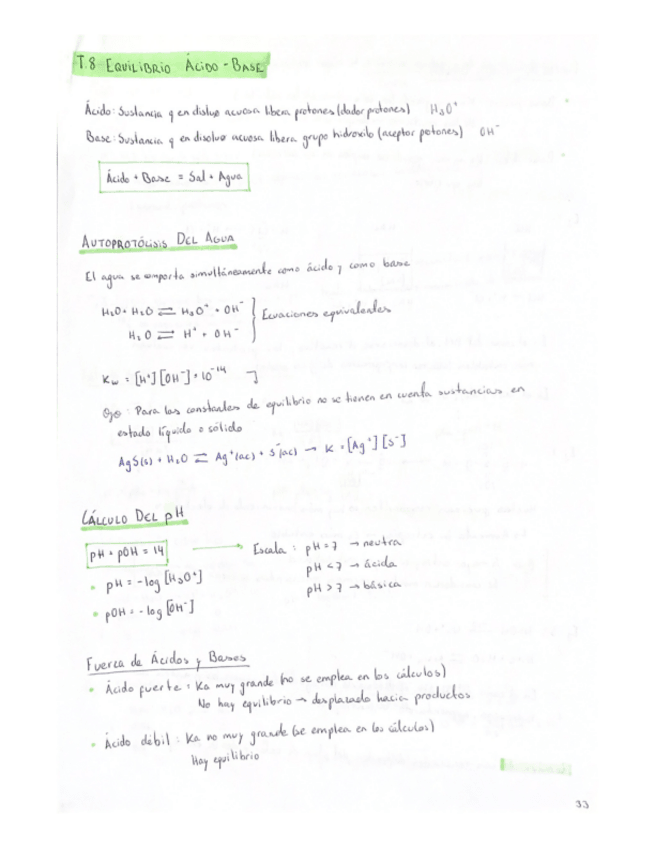 T.8 EQUILIBRIO ÁCIDO-BASE
Ácido: Sustancia q en disluo acuosa libera protones (dador protones) H₃O⁺
Base: Sustancia q en disoluo acuosa libera grupo hidroxilo (aceptor potones) OH⁻
Ácido + Base = Sal + Agua
AUTOPROTÓLISIS DEL AGUA
El agua se comporta simultáneamente como ácido y como base
H₂O + H₂O ⇌ H₃O⁺ + OH⁻
H₂O ⇌ H⁺ + OH⁻
Ecuaciones equivalentes
Kw = [H⁺][OH⁻] = 10⁻¹⁴
Ojo: Para las constantes de equilibrio no se tienen en cuenta sustancias en
estado líquido o sólido
AgS(s) + H₂O ⇌ Ag⁺(ac) + S⁻(ac) → K = [Ag⁺][S⁻]
CÁLCULO DEL pH
pH + pOH = 14 → Escala: pH = 7 → neutra
pH < 7 → ácida
pH > 7 → básica
• pH = -log [H₃O⁺]
• pOH = -log [OH⁻]
Fuerza de Ácidos y Bases
• Ácido fuerte: Ka muy grande (no se emplea en los cálculos)
No hay equilibrio → desplazado hacia productos
• Ácido débil: Ka no muy grande (se emplea en los cálculos)
Hay equilibrio
33